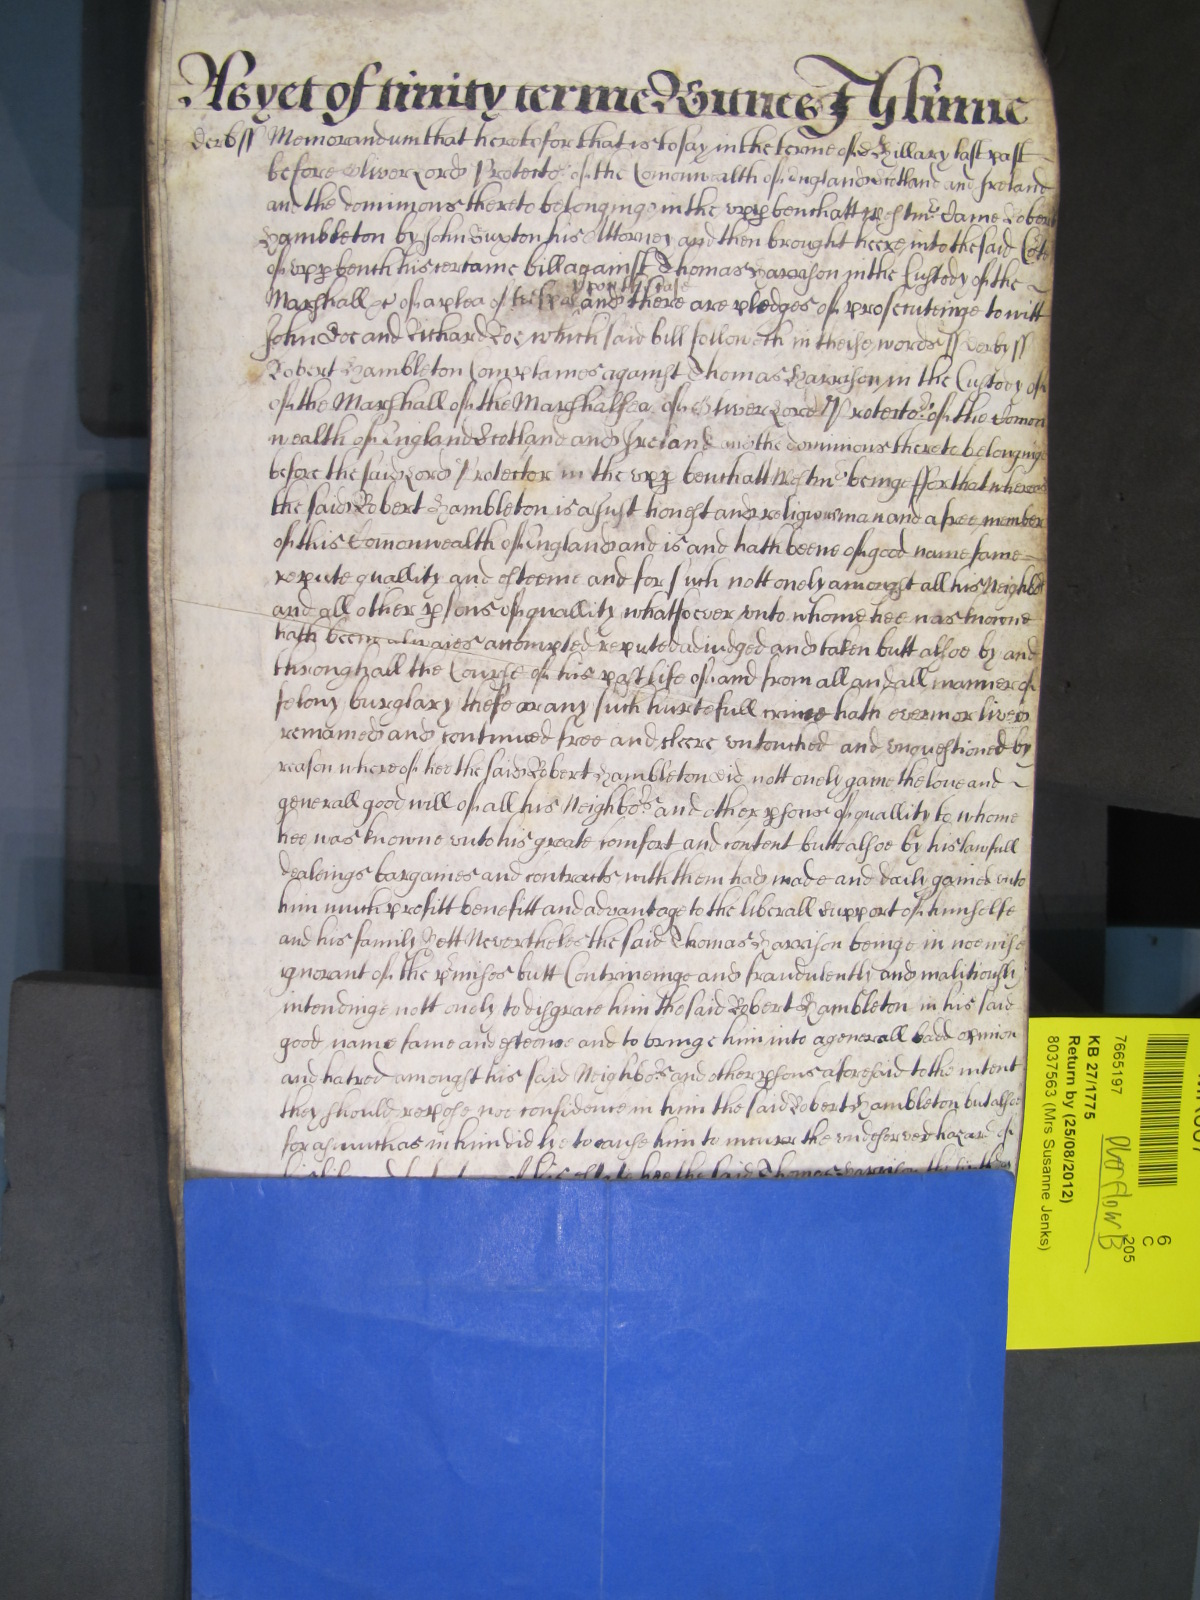 As yet of trinity terme Wittnes J Glinne
Derb ss Memorandum that heretofor that is to say in the terme of St Hillary last past
before Oliver Lord Protector of the Comonwealth of England Scotland and Ireland
and the dominions thereto belonginge in the vpp bench att Westmr Came Robert
Hambleton by John Buxton his Attorney and then brought heere into the said Cort
of vpp bench his certaine bill against Thomas Harrison in the Custody of the
Marshall &c of a plea of trespas vpon the case and there are pledges of prosecuteinge to witt
John Doe and Richard Roe which said bill followeth in theise words ss Derb ss
Robert Hambleton Complaines against Thomas Harrison in the Custody of
of the Marshall of the Marshalsea of Oliver Lord Protector of the Comon
wealth of England Scotland and Ireland and the dominions thereto belonginge
before the said Lord Protector in the vpp bench att Westmr beinge ffor that whereas
the said Robert Hambleton is a just honest and religious man and a free member
of this Comonwealth of England and is and hath beene of good name fame
repute quallity and esteeme and for such nott onely amongst all his Neighbors
and all other psons of quallity whatsoever vnto whome hee was knowne
hath beene alwaies accompted reputed adiudged and taken butt alsoe by and
through all the Course of his past life of and from all and all manner of
felony burglary thefte or any such hurtefull crime hath evermor lived
remained and continued free and cleere vntouched and vnquestioned by
reason whereof hee the said Robert Hambleton did nott onely gaine the love and
generall good will of all his Neighbors and other psons of quallity to whome
hee was knowne vnto his greate comfort and content butt alsoe by his lawfull
dealeings bargaines and contracts with them had made and daily gained vnto
him much profitt benefitt and advantage to the liberall support of himselfe
and his family Nott Neverthelesse the said Thomas Harrison beinge in noe wise
ignorant of the pmises butt Contriveinge and fraudulently and malitiously
intendinge nott onely to disgrace him the said Robert Hambleton in his said
good name fame and esteeme and to bringe him into a generall badd opinion
and hatred amongst his said Neighbors and other psons aforesaid to the intent
they should repose noe confidence in him the said Robert Hambleton but alsoe
for as much as in him did lie to cause him to incurr the vndeserved hazard of
his estate hee the said Thomas Harrison
7665197
KB 27/1775
Return by (25/08/2012)
8037563 (Mrs Susanne Jenks)
Overflow B
6
C
205